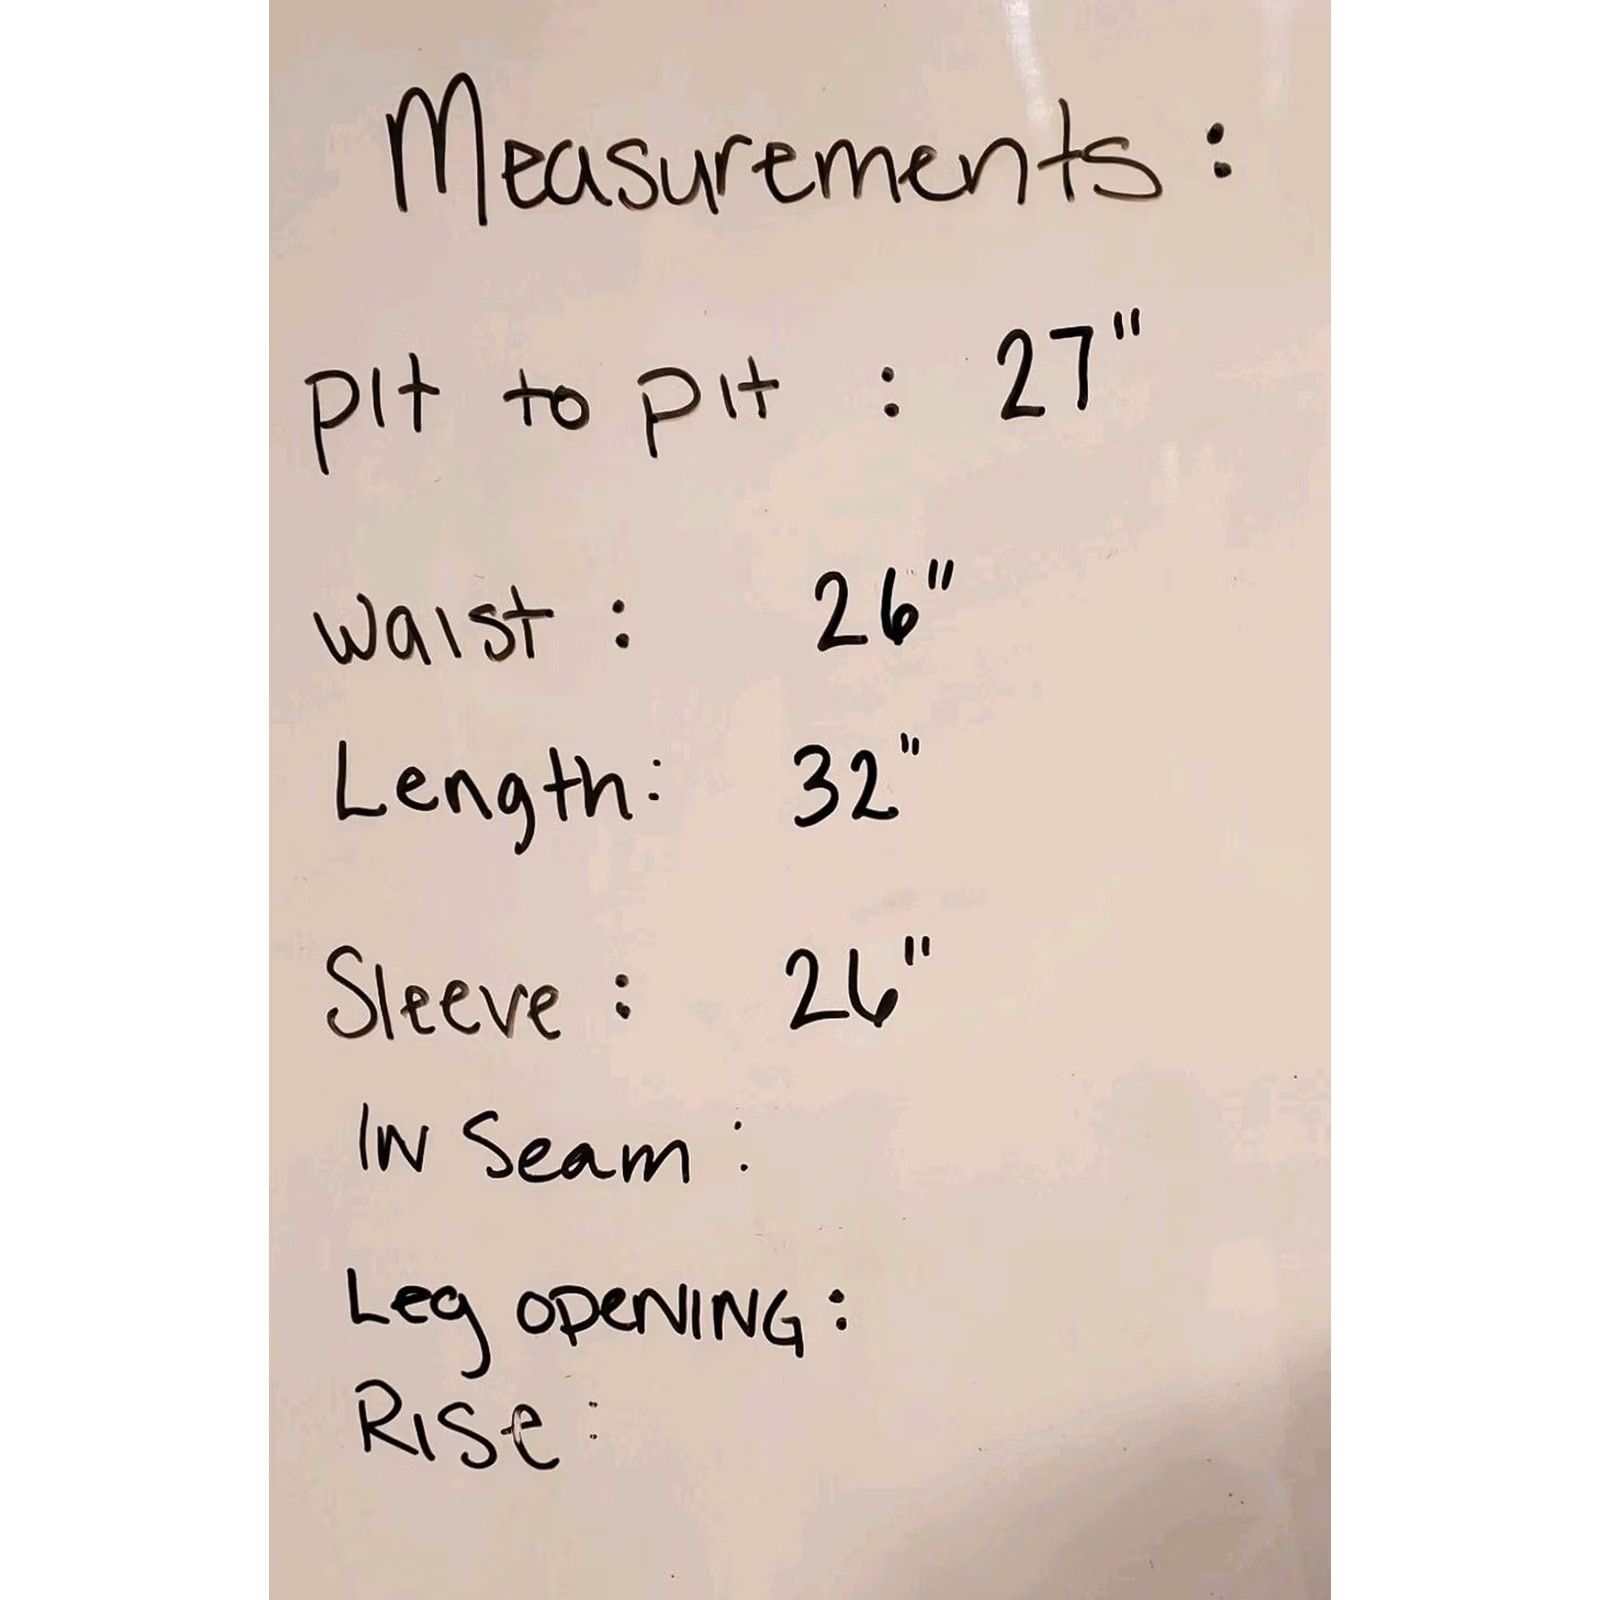 Measurements :
Pit to Pit : 27"
Waist : 26"
Length: 32"
Sleeve : 26"
IN Seam :
Leg OPENING :
RISe :